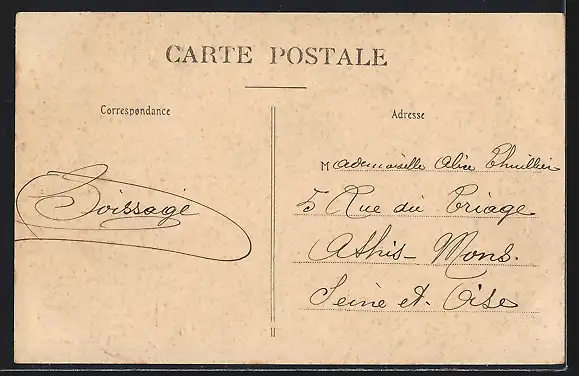 CARTE POSTALE
Correspondance
Adresse
Mademoiselle Alice Thuillier
5 Rue du Triage
Athis-Mons.
Seine et. Oise
Boissage